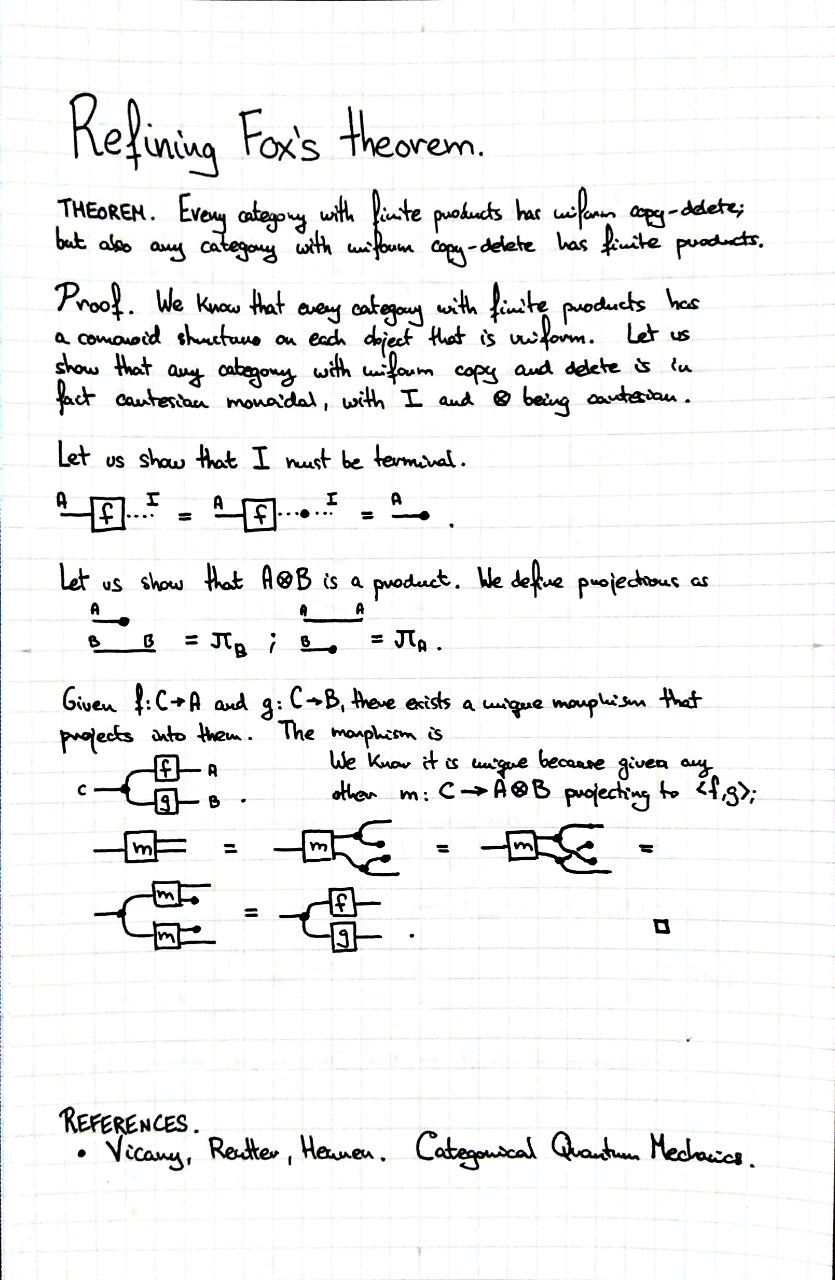 Refining Fox's theorem.
THEOREM. Every category with finite products has uniform copy-delete;
but also any category with uniform copy-delete has finite products.
Proof. We know that every category with finite products has
a comonoid structure on each object that is uniform. Let us
show that any category with uniform copy and delete is in
fact cartesian monoidal, with I and ⊗ being cartesian.
Let us show that I must be terminal.
A f I = A f I = A .
Let us show that A⊗B is a product. We define projections as
A A A
B B = π_B ; B = π_A .
Given f: C→A and g: C→B, there exists a unique morphism that
projects into them. The morphism is
f A We know it is unique because given any
C g B . other m: C → A⊗B projecting to <f,g>;
m = m = m =
m m = f g . □
REFERENCES.
• Vicary, Reutter, Heunen. Categorical Quantum Mechanics.